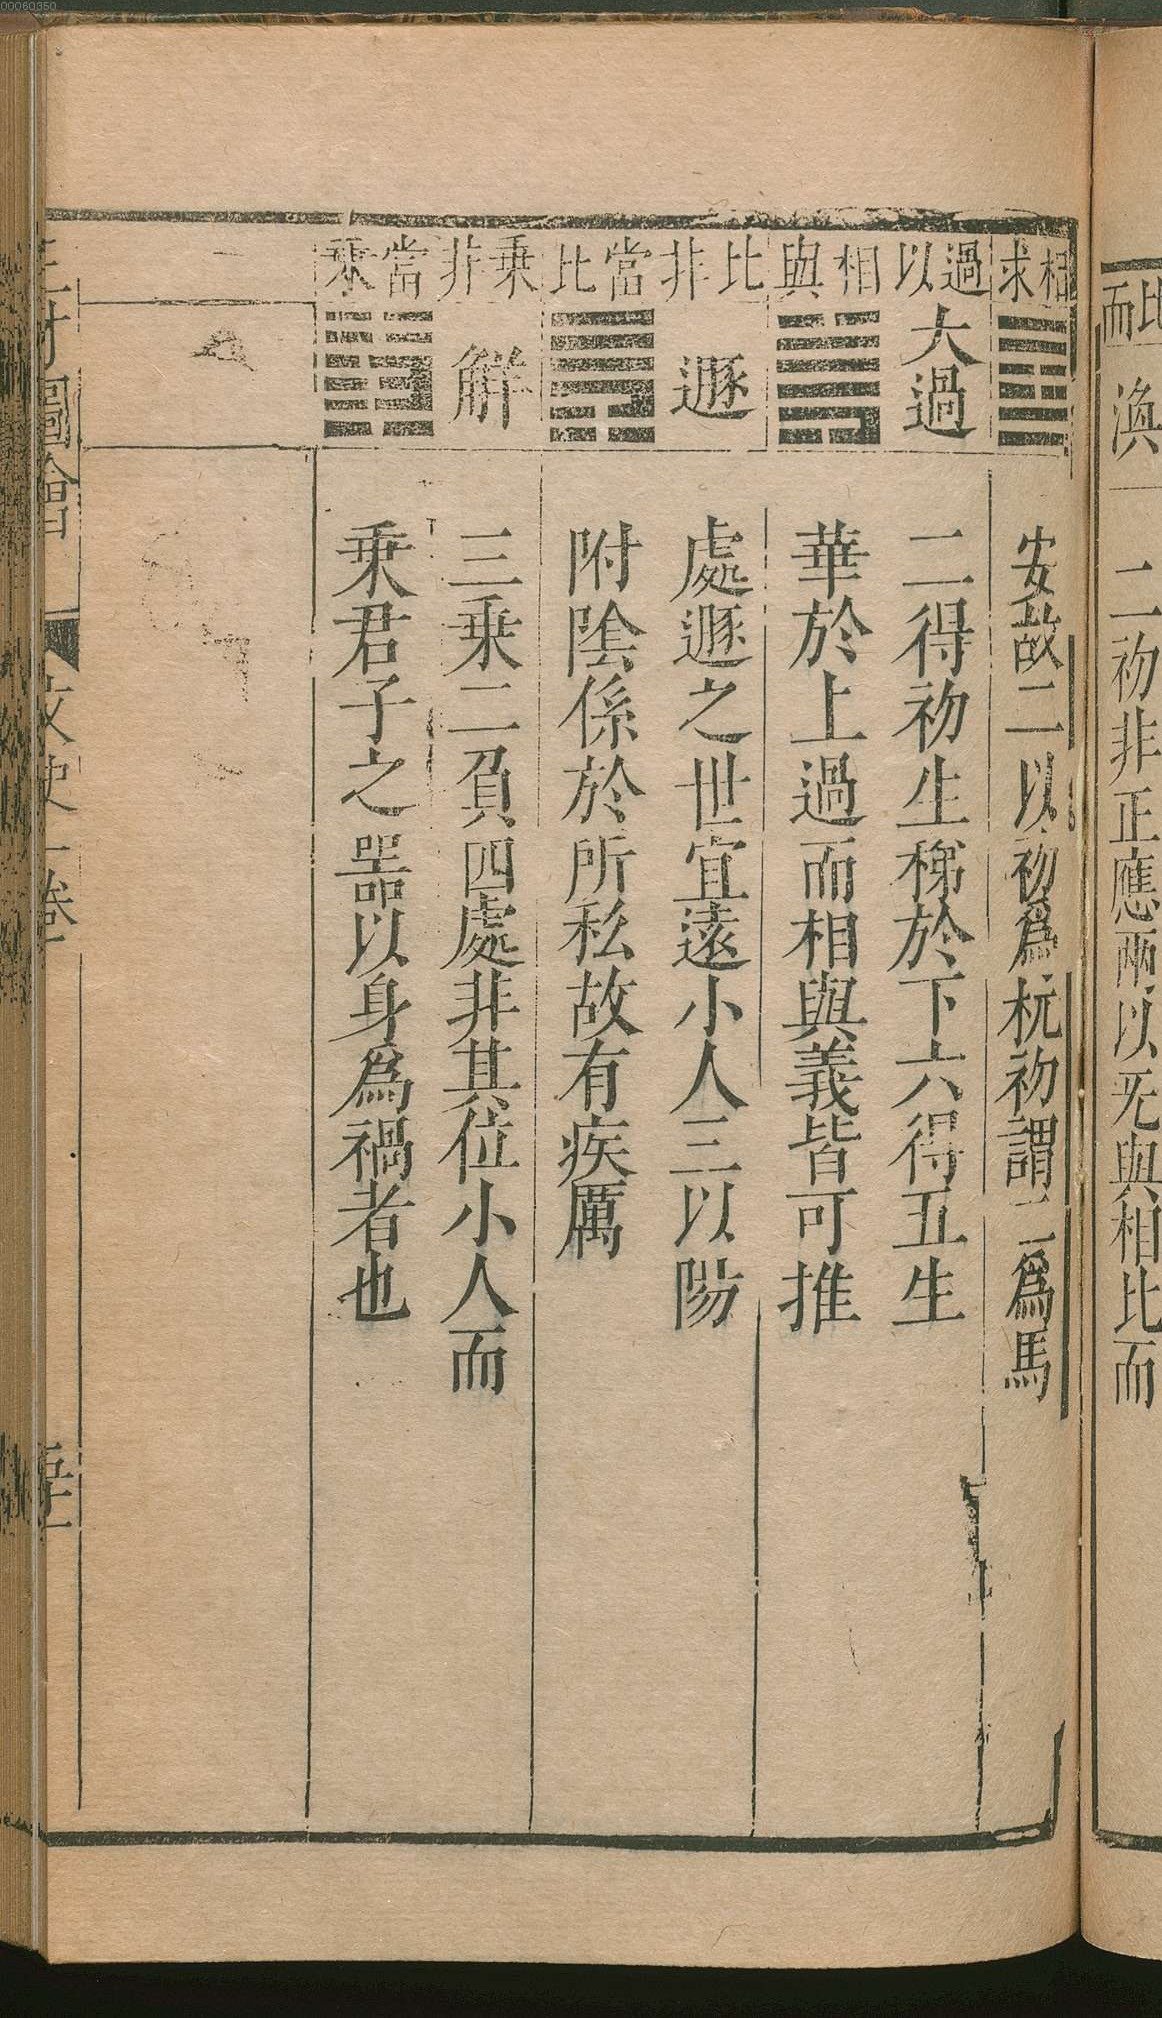 00060350
比而
渙
二初非正應兩以无與相比而
相求
安故二以初爲杭初謂二爲馬
過以相與
大過
二得初生梯於下六得五生
華於上過而相與義皆可推
比非當比
遯
處遯之世宜遠小人三以陽
附陰係於所私故有疾厲
乗非當乗
解
三乗二負四處非其位小人而
乗君子之噐以身爲禍者也
三才圖會
文史一卷